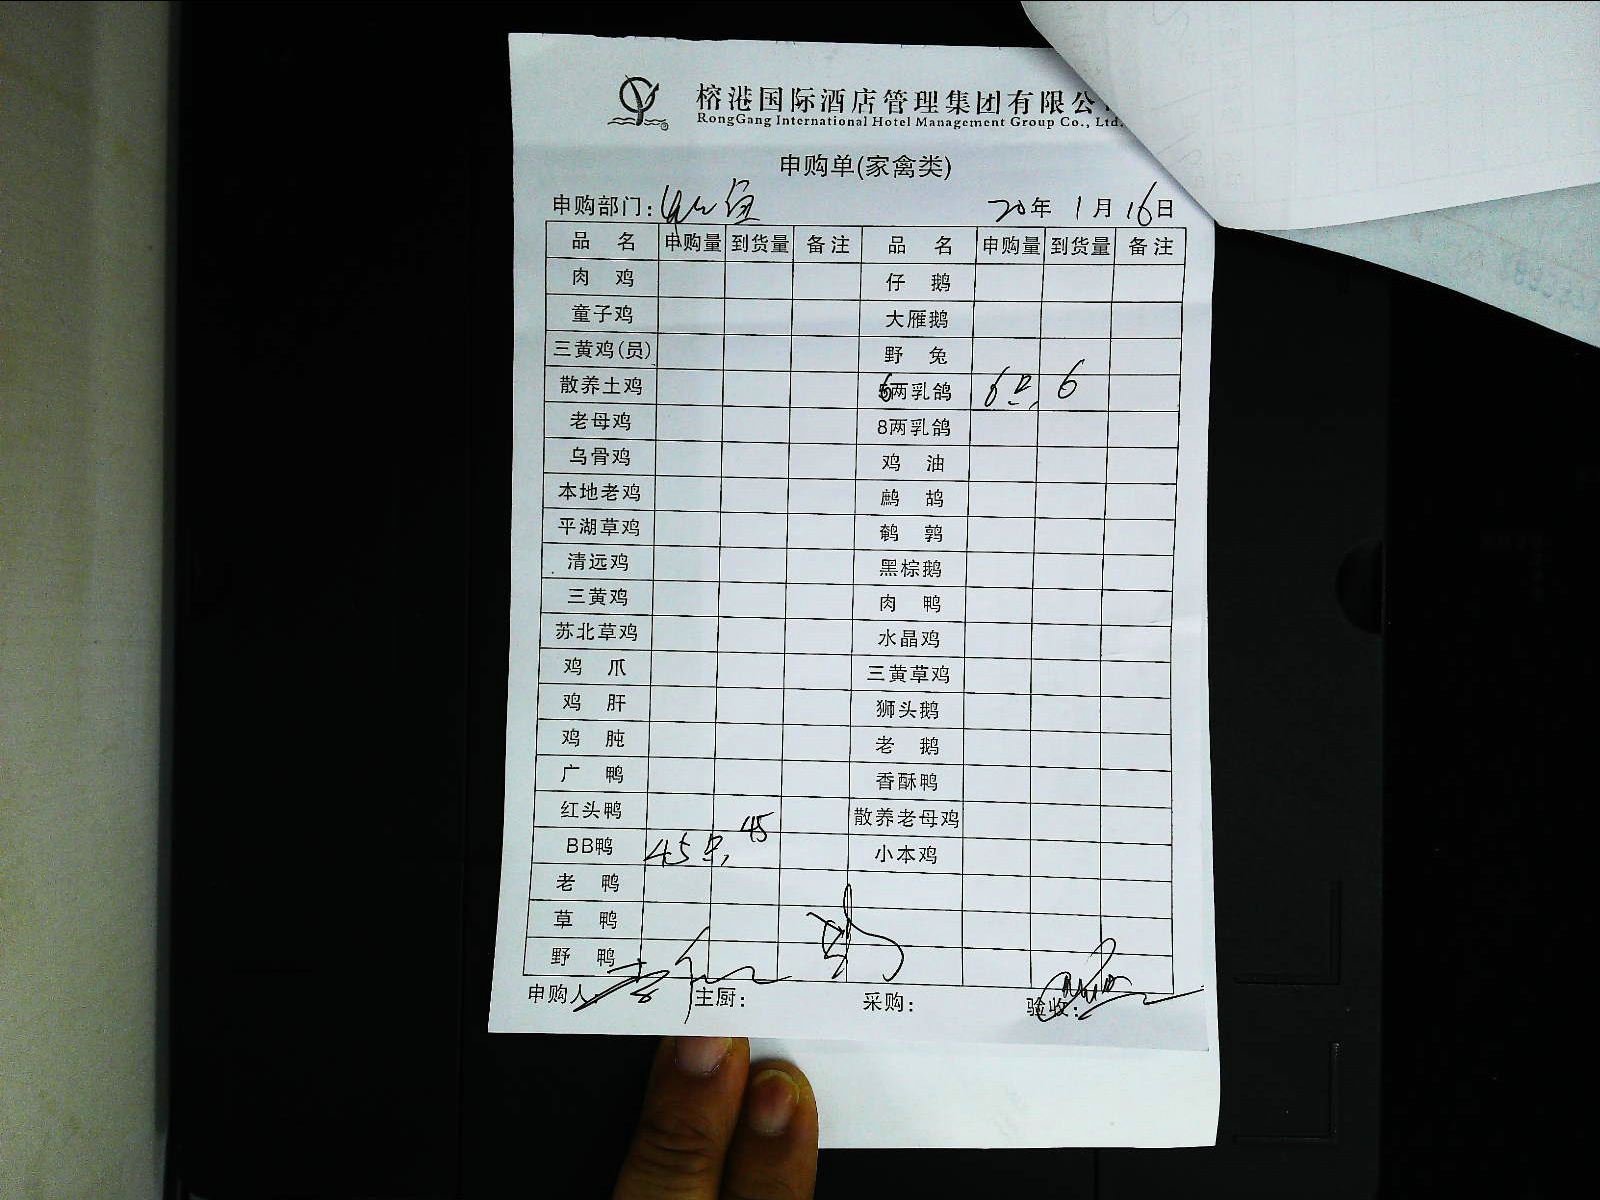 榕港国际酒店管理集团有限公
RongGang International Hotel Management Group Co., Ltd.
申购单(家禽类)
申购部门: 20年 1月 16日
品 名 申购量 到货量 备注 品 名 申购量 到货量 备注
肉 鸡 仔 鹅
童子鸡 大雁鹅
三黄鸡(员) 野 兔
散养土鸡 6两乳鸽 6只. 6
老母鸡 8两乳鸽
乌骨鸡 鸡 油
本地老鸡 鹧 鸪
平湖草鸡 鹌 鹑
清远鸡 黑棕鹅
三黄鸡 肉 鸭
苏北草鸡 水晶鸡
鸡 爪 三黄草鸡
鸡 肝 狮头鹅
鸡 肫 老 鹅
广 鸭 香酥鸭
红头鸭 散养老母鸡
BB鸭 45只. 45 小本鸡
老 鸭
草 鸭
野 鸭
申购人 主厨: 采购: 验收: